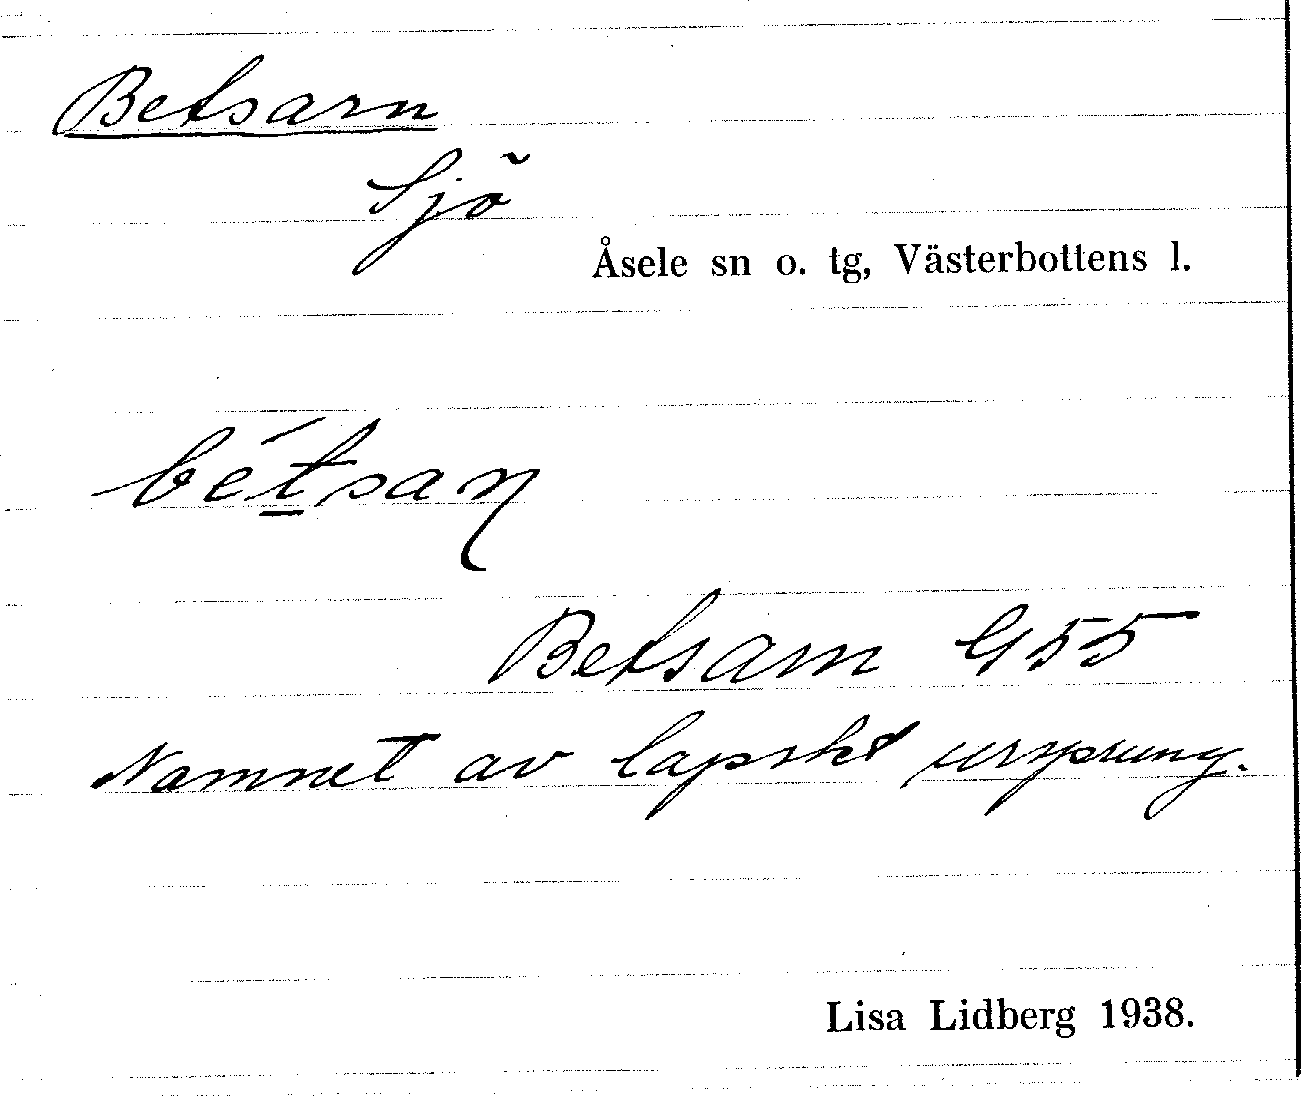 Betsarn
Sjö
Åsele sn o. tg, Västerbottens l.
bétsaɳ
Betsarn G55
Namnet av lapskt ursprung.
Lisa Lidberg 1938.